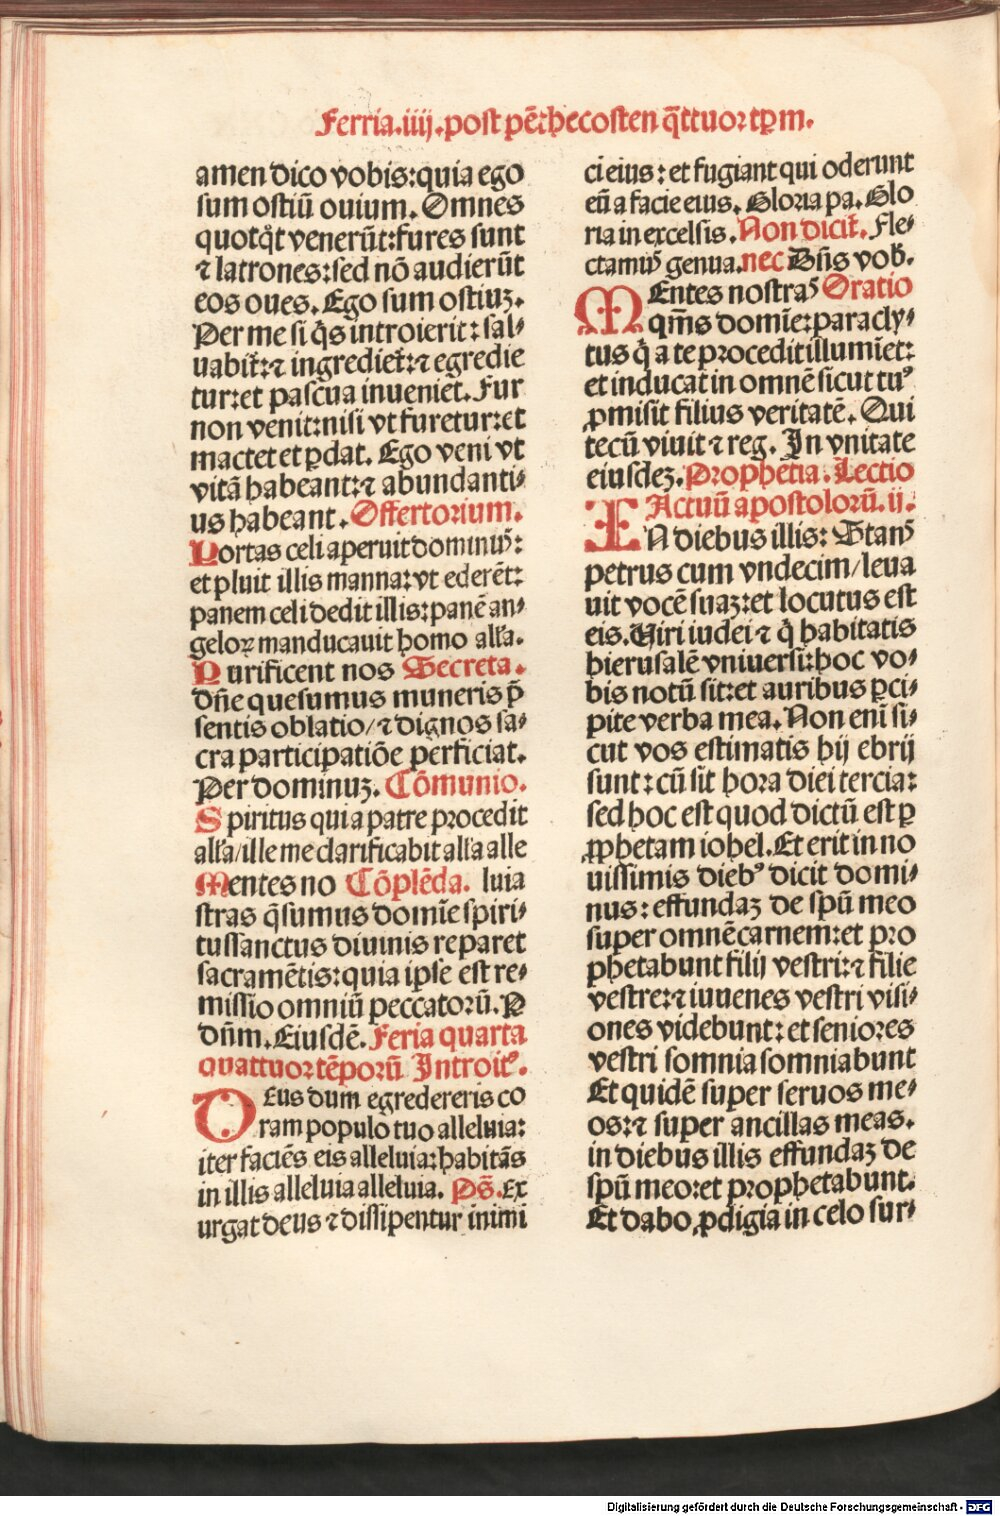 Ferria.iiij.post pēthecosten q̄ttuor tꝑm.
amen dico vobis: quia ego
sum ostiū ouium. Omnes
quotq̄t venerūt: fures sunt
⁊ latrones: sed nō audierūt
eos oues. Ego sum ostiuꝫ.
Per me si q̇s introierit: sal⸗
uabit̄: ⁊ ingrediet̄: ⁊ egredie
tur: et pascua inueniet. Fur
non venit: nisi vt furetur: et
mactet et ꝑdat. Ego veni vt
vitā habeant: ⁊ abundanti⸗
us habeant. Offertorium.
Portas celi aperuit dominꝰ:
et pluit illis manna: vt ederēt:
panem celi dedit illis: panē an⸗
geloꝝ manducauit homo all'a.
Purificent nos Secreta.
dn̄e quesumus muneris p̄
sentis oblatio/ ⁊ dignos sa⸗
cra participatiōe perficiat.
Per dominuꝫ. Cōmunio.
Spiritus qui a patre procedit
all'a/ ille me clarificabit all'a alle
Mentes no Cōplēda. luia
stras q̄sumus domīe spiri⸗
tussanctus diuinis reparet
sacramētis: quia ipse est re⸗
missio omniū peccatorū. P
dn̄m. Eiusdē. Feria quarta
quattuor tēporū Introitꝰ.
DEus dum egredereris co
ram populo tuo alleluia:
iter faciēs eis alleluia: habitās
in illis alleluia alleluia. Ps̄. Ex
urgat deus ⁊ dissipentur inimi
ci eius: et fugiant qui oderunt
eū a facie eius. Gloria pa. Glo
ria in excelsis. Non dicit̄. Fle⸗
ctamꝰ genua. nec Dn̄s vob.
MEntes nostras Oratio
qm̄s domīe: paracly⸗
tus q̇ a te procedit illumīet:
et inducat in omnē sicut tuꝰ
ꝓmisit filius veritatē. Qui
tecū viuit ⁊ reg. In vnitate
eiusdeꝫ. Prophetia. Lectio
Actuū apostolorū. ij.
IN diebus illis: Stans
petrus cum vndecim/ leua
uit vocē suaꝫ: et locutus est
eis. Uiri iudei ⁊ q̇ habitatis
hierusalē vniuersi: hoc vo⸗
bis notū sit: et auribus ꝑci⸗
pite verba mea. Non enī si⸗
cut vos estimatis hij ebrij
sunt: cū sit hora diei tercia:
sed hoc est quod dictū est ꝑ
ꝓphetam iohel. Et erit in no
uissimis diebꝰ dicit domi⸗
nus: effundaꝫ de spū meo
super omnē carnem: et pro
phetabunt filij vestri: ⁊ filie
vestre: ⁊ iuuenes vestri visi⸗
ones videbunt: et seniores
vestri somnia somniabunt
Et quidē super seruos me⸗
os: ⁊ super ancillas meas.
in diebus illis effundaꝫ de
spū meo: et prophetabunt.
Et dabo ꝓdigia in celo sur⸗
Digitalisierung gefördert durch die Deutsche Forschungsgemeinschaft - DFG